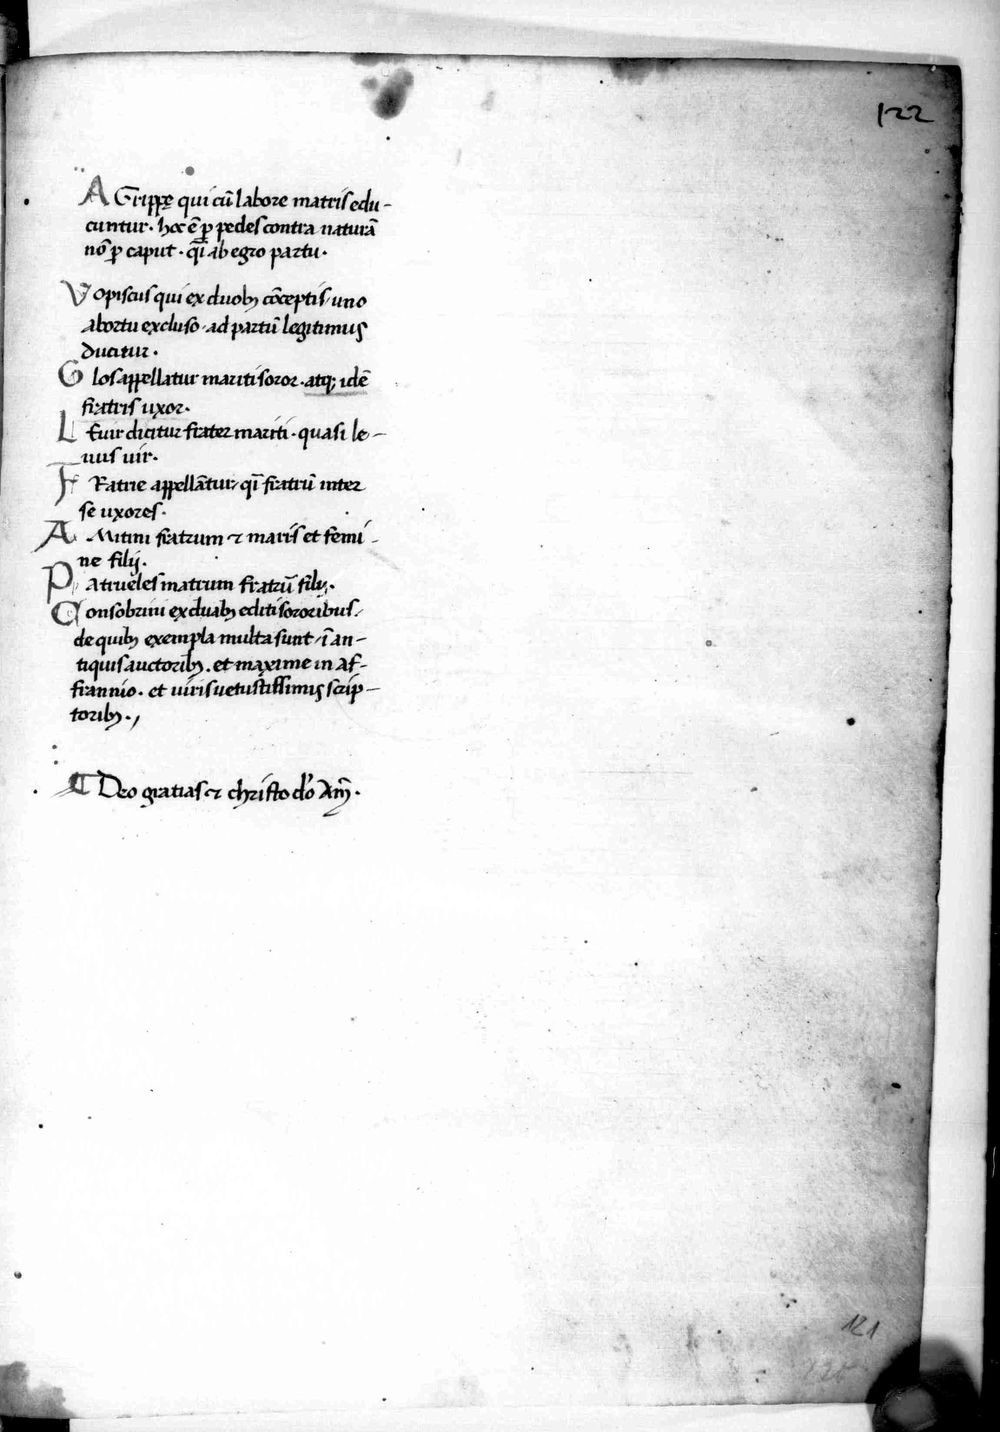 122
AGrippę qui cū labore matris edu-
cuntur · hoc ē ꝑ pedes contra naturā
nō ꝑ caput · q̄i ab egro partu ·
Vopiscus qui ex duobꝫ cōceptis uno
abortu excluso · ad partū legitimus
ducitur ·
Glos appellatur mariti soror · atqꝫ idē
fratris uxor ·
LEuir dicitur frater mariti · quasi le-
uus uir ·
FRatrie appellātur, q̄i fratrū inter
se uxores ·
AMitini fratrum ⁊ maris et femi-
ne filij ·
Patrueles matrum fratrū filij ·
Consobrini ex duabꝫ editi sororibus /
de quibꝫ exempla multa sunt / ī an-
tiquis auctoribꝫ . et maxime in Af-
frannio · et uiris uetustissimis scrip-
toribꝫ · ,
¶ Deo gratias ⁊ christo dō Am̄ ·
121